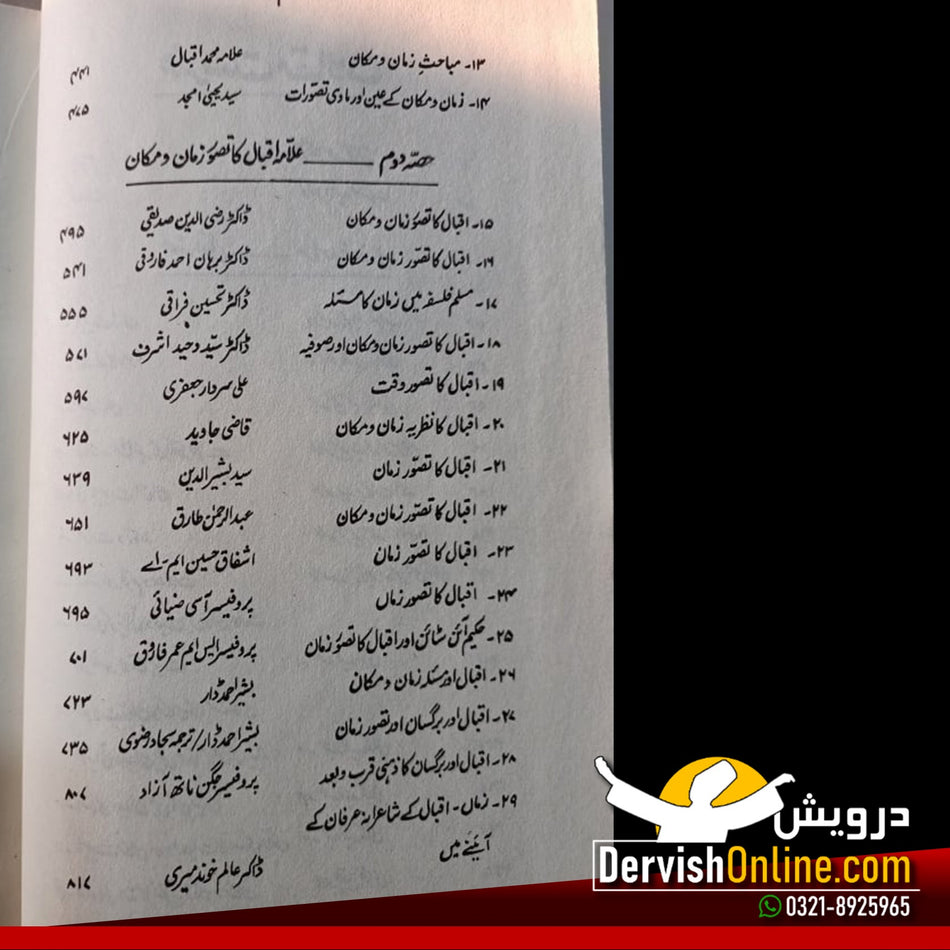 ۱۳۔ مباحثِ زمان و مکان علامہ محمد اقبال ۴۴۱
۱۴۔ زمان و مکان کے عین اور مادی تصورات سید یحییٰ امجد ۴۷۵
حصّہ دوم ــــــــ علاّمہ اقبال کا تصوّر زمان و مکان
۱۵۔ اقبال کا تصوّر زمان و مکان ڈاکٹر رضی الدین صدیقی ۴۹۵
۱۶۔ اقبال کا تصوّر زمان و مکان ڈاکٹر برہان احمد فاروقی ۵۴۱
۱۷۔ مسلم فلسفہ میں زمان کا مسئلہ ڈاکٹر تحسین فراقی ۵۵۵
۱۸۔ اقبال کا تصور زمان و مکان اور صوفیہ ڈاکٹر سیّد وحید اشرف ۵۷۱
۱۹۔ اقبال کا تصور وقت علی سردار جعفری ۵۹۷
۲۰۔ اقبال کا نظریہ زمان و مکان قاضی جاوید ۶۲۵
۲۱۔ اقبال کا تصوّر زمان سید بشیر الدین ۶۳۹
۲۲۔ اقبال کا تصوّر زمان و مکان عبدالرحمٰن طارق ۶۵۱
۲۳۔ اقبال کا تصوّر زمان اشفاق حسین ایم۔اے ۶۹۳
۲۴۔ اقبال کا تصور زماں پروفیسر آسی ضیائی ۶۹۵
۲۵۔ حکیم آئن سٹائن اور اقبال کا تصوّر زمان پروفیسر ایس ایم عمر فاروق ۷۰۱
۲۶۔ اقبال اور مسئلہ زمان و مکان بشیر احمد ڈار ۷۲۳
۲۷۔ اقبال اور برگسان اور تصور زمان بشیر احمد ڈار/ترجمہ سجاد رضوی ۷۳۵
۲۸۔ اقبال اور برگسان کا ذہنی قرب و بعد پروفیسر جگن ناتھ آزاد ۸۰۷
۲۹۔ زماں۔ اقبال کے شاعرانہ عرفان کے
آئینے میں ڈاکٹر عالم خوند میری ۸۱۷
درویش
DervishOnline.com
0321-8925965